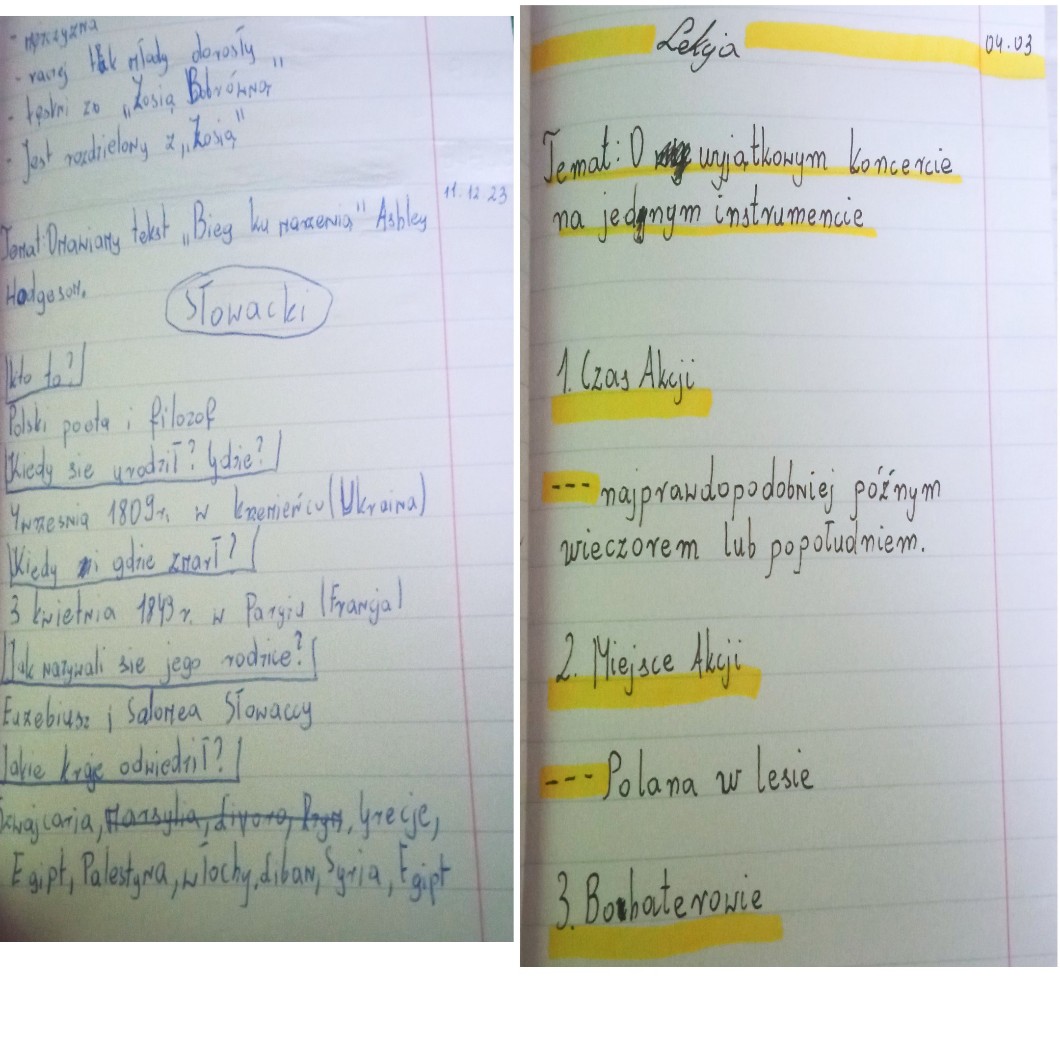 - mężczyzna
- raczej młody dorosły
- tęskni za „Zosią Bobrówną"
- Jest rozdzielony z „Zosią"
11.12.23
Temat: Omawiamy tekst „Bieg ku marzeniu" Ashley
Hodgeson.
Słowacki
Kto to?
Polski poeta i filozof
Kiedy sie urodził? Gdzie?
4 września 1809r. w krzemieńcu (Ukraina)
Kiedy i gdzie zmarł?
3 kwietnia 1849 r. w Paryżu (Francja)
Jak nazywali sie jego rodzice?
Euzebiusz i Salomea Słowaccy
Jakie kraje odwiedził?
Szwajcaria, Marsylia, Livorno, Rzym, Grecje,
Egipt, Palestyna, włochy, Liban, Syria, Egipt
Lekcja 04.03
Temat: O wyjątkowym koncercie
na jednym instrumencie
1. Czas Akcji
--- najprawdopodobniej późnym
wieczorem lub popołudniem.
2. Miejsce Akcji
--- Polana w lesie
3. Bohaterowie